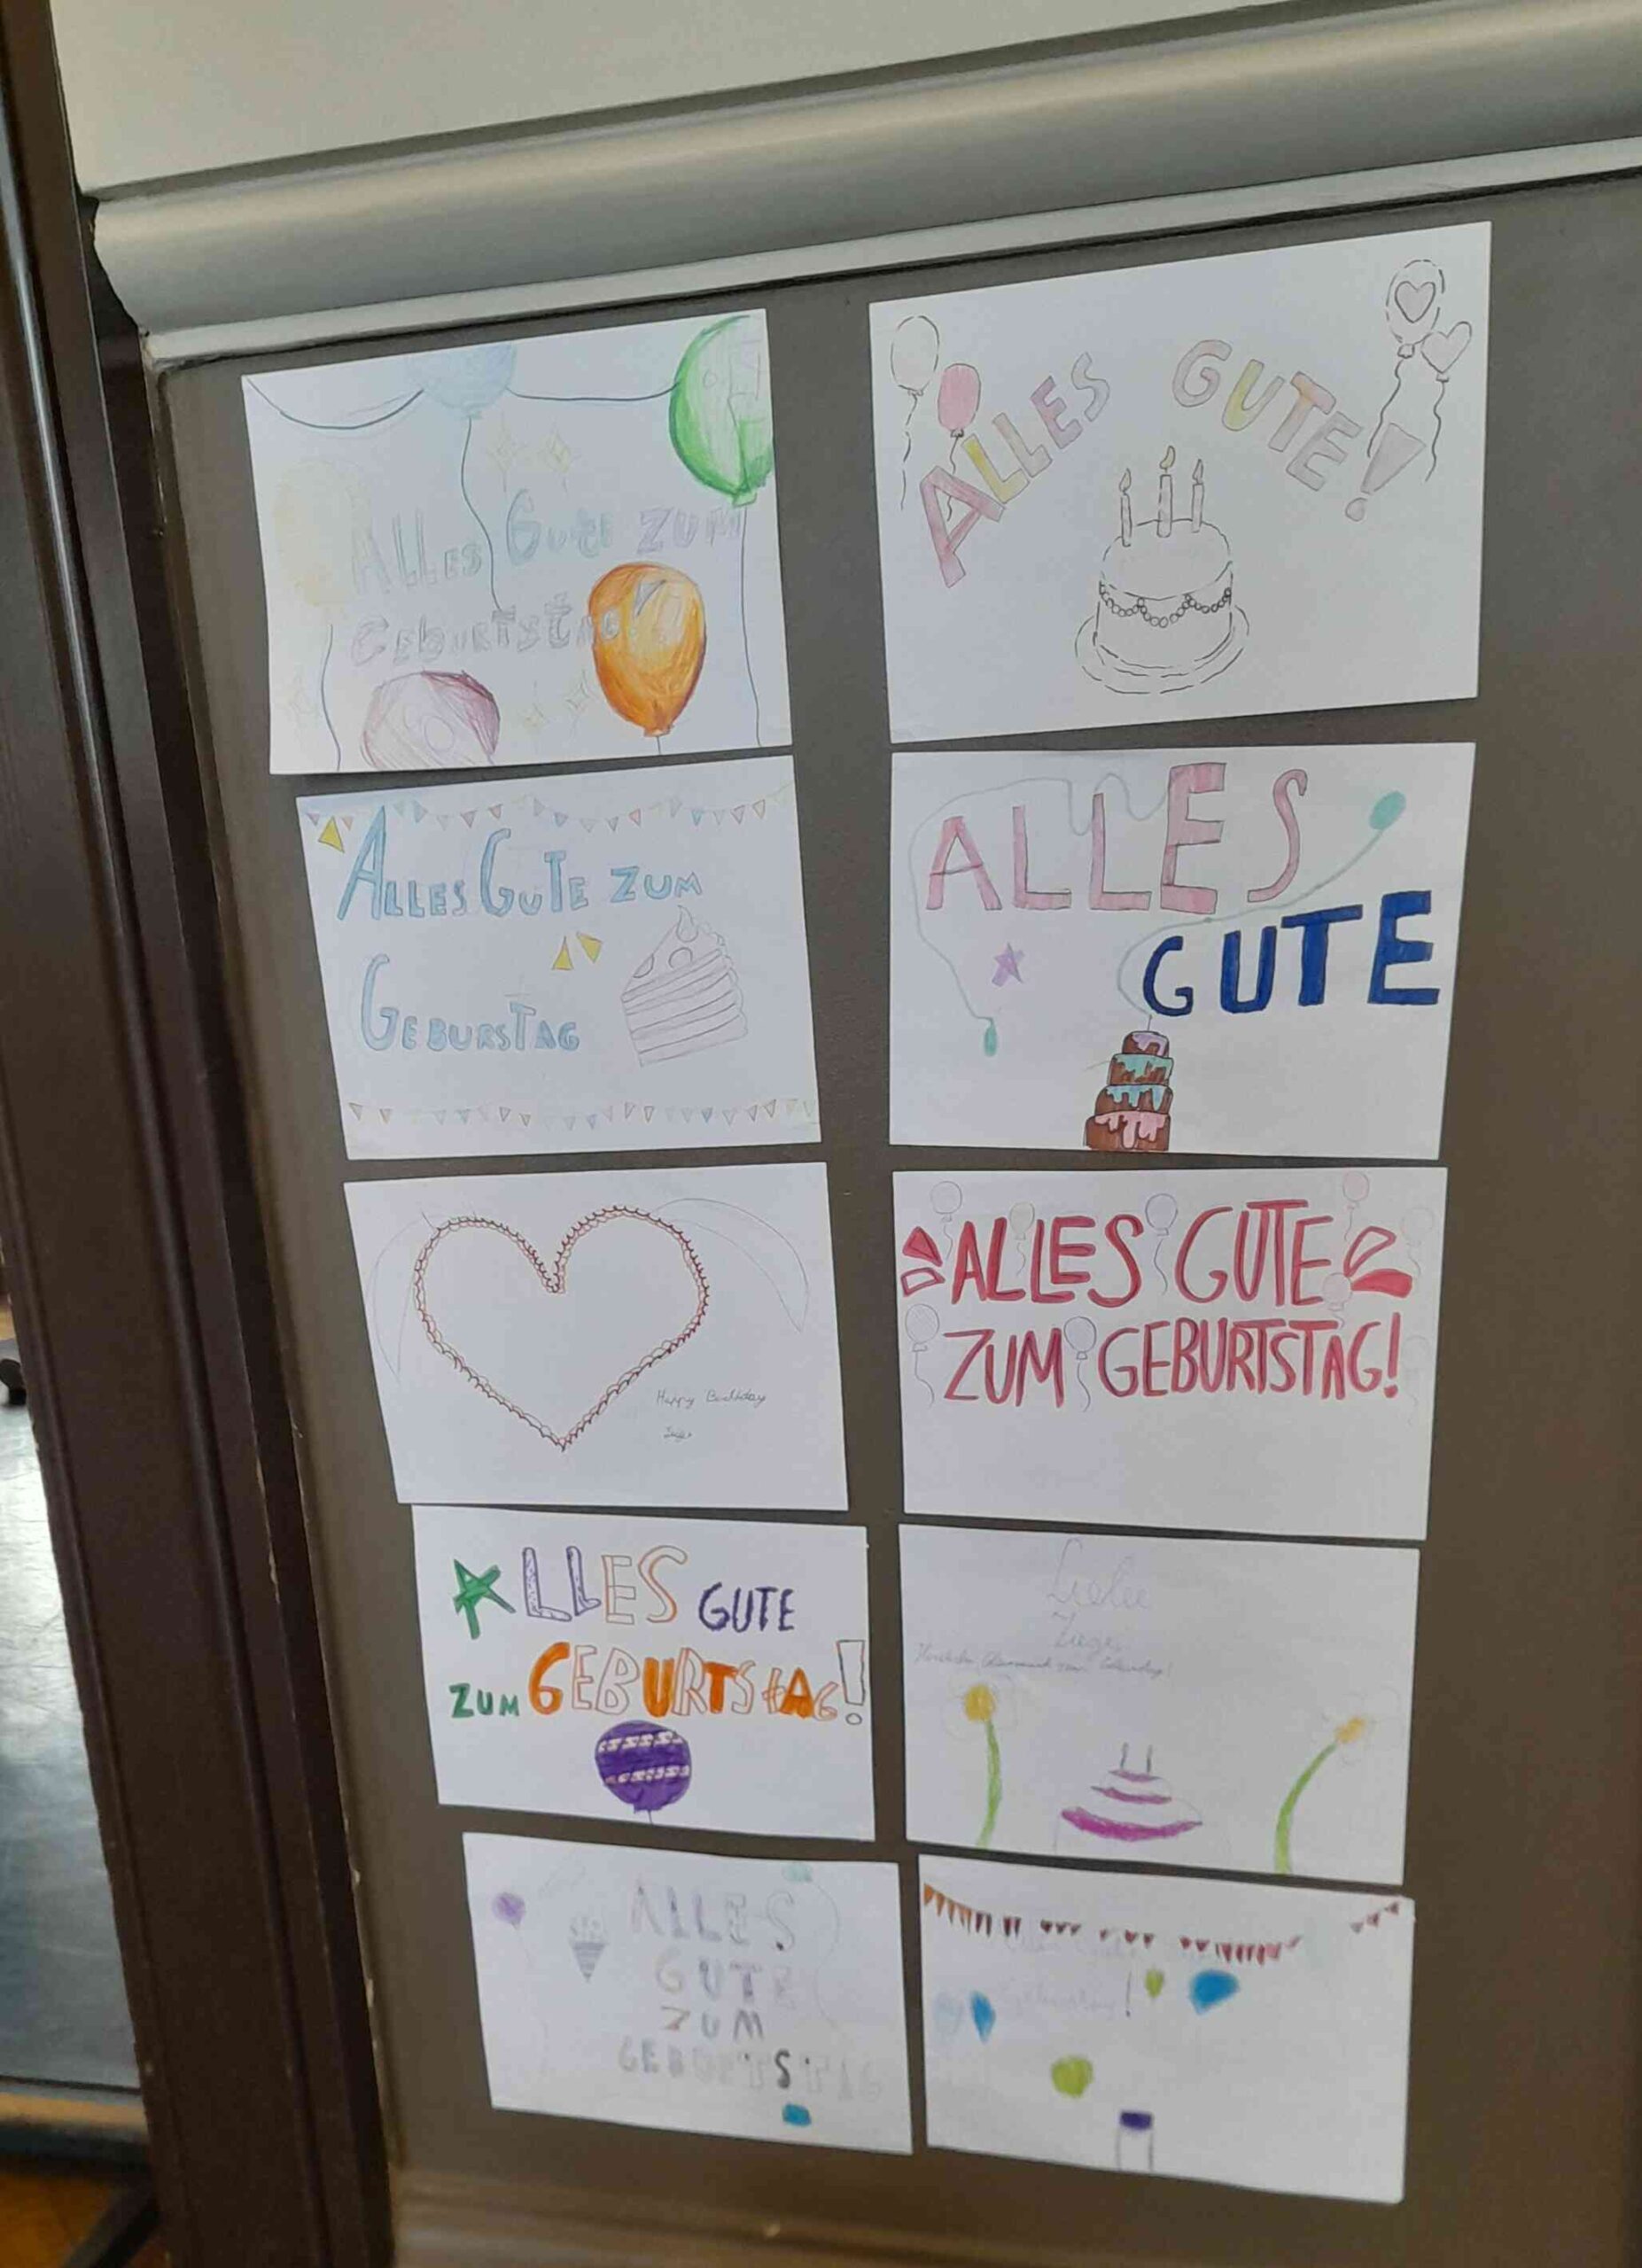 ALLES GUTE ZUM
GEBURTSTAG
ALLES GUTE!
ALLES GUTE ZUM
GEBURSTAG
ALLES
GUTE
Happy Birthday
ALLES GUTE
ZUM GEBURTSTAG!
ALLES GUTE
ZUM GEBURTSTAG!
Liebe
zum
ALLES
GUTE
ZUM
GEBURTSTAG